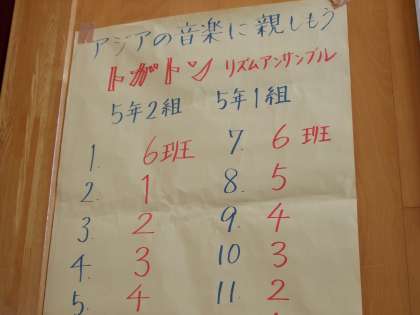 アジアの音楽に親しもう
トガトン リズムアンサンブル
5年2組 5年1組
1. 6班 7. 6班
2. 1 8. 5
3. 2 9. 4
4. 3 10 3
5. 4 11 2